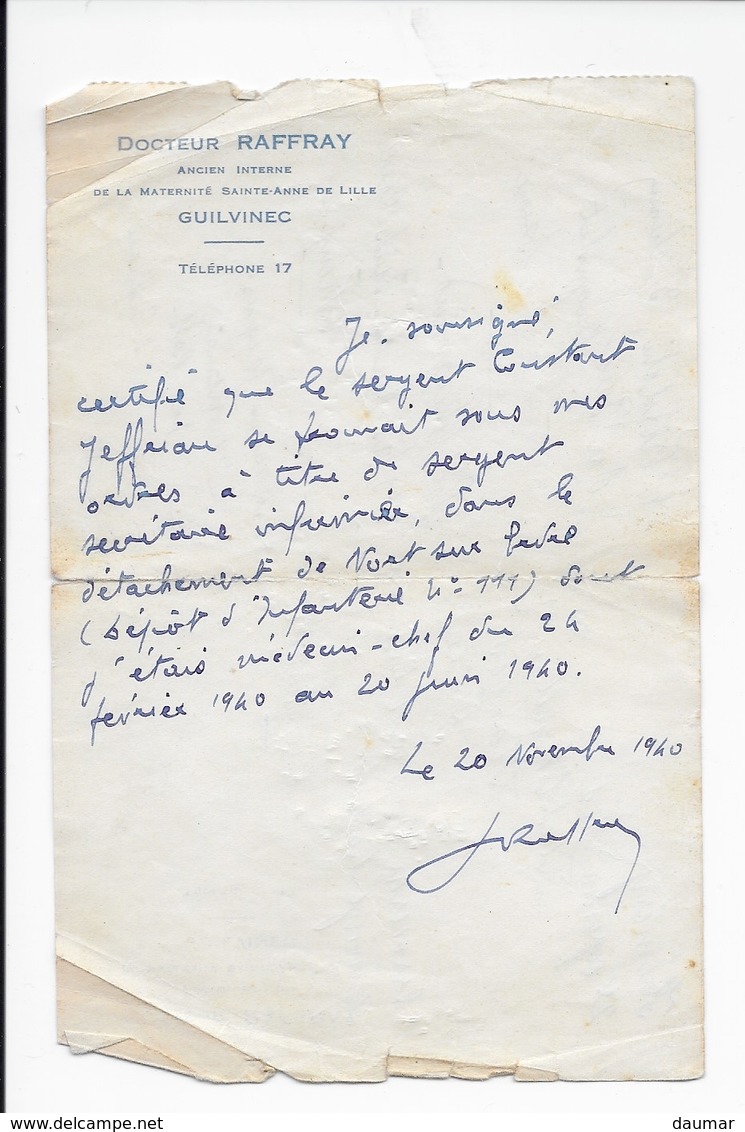 DOCTEUR RAFFRAY
ANCIEN INTERNE
DE LA MATERNITÉ SAINTE-ANNE DE LILLE
GUILVINEC
TÉLÉPHONE 17
Je. soussigné,
certifié que le sergent Constant
Jeffriau se trouvait sous mes
ordres à titre de sergent
secrétaire infirmier, dans le
détachement de Nort sur Erdre
(Dépôt d'Infanterie N° 111) dont
j'étais médecin-chef du 24
février 1940 au 20 juin 1940.
Le 20 Novembre 1940
delcampe.net
daumar